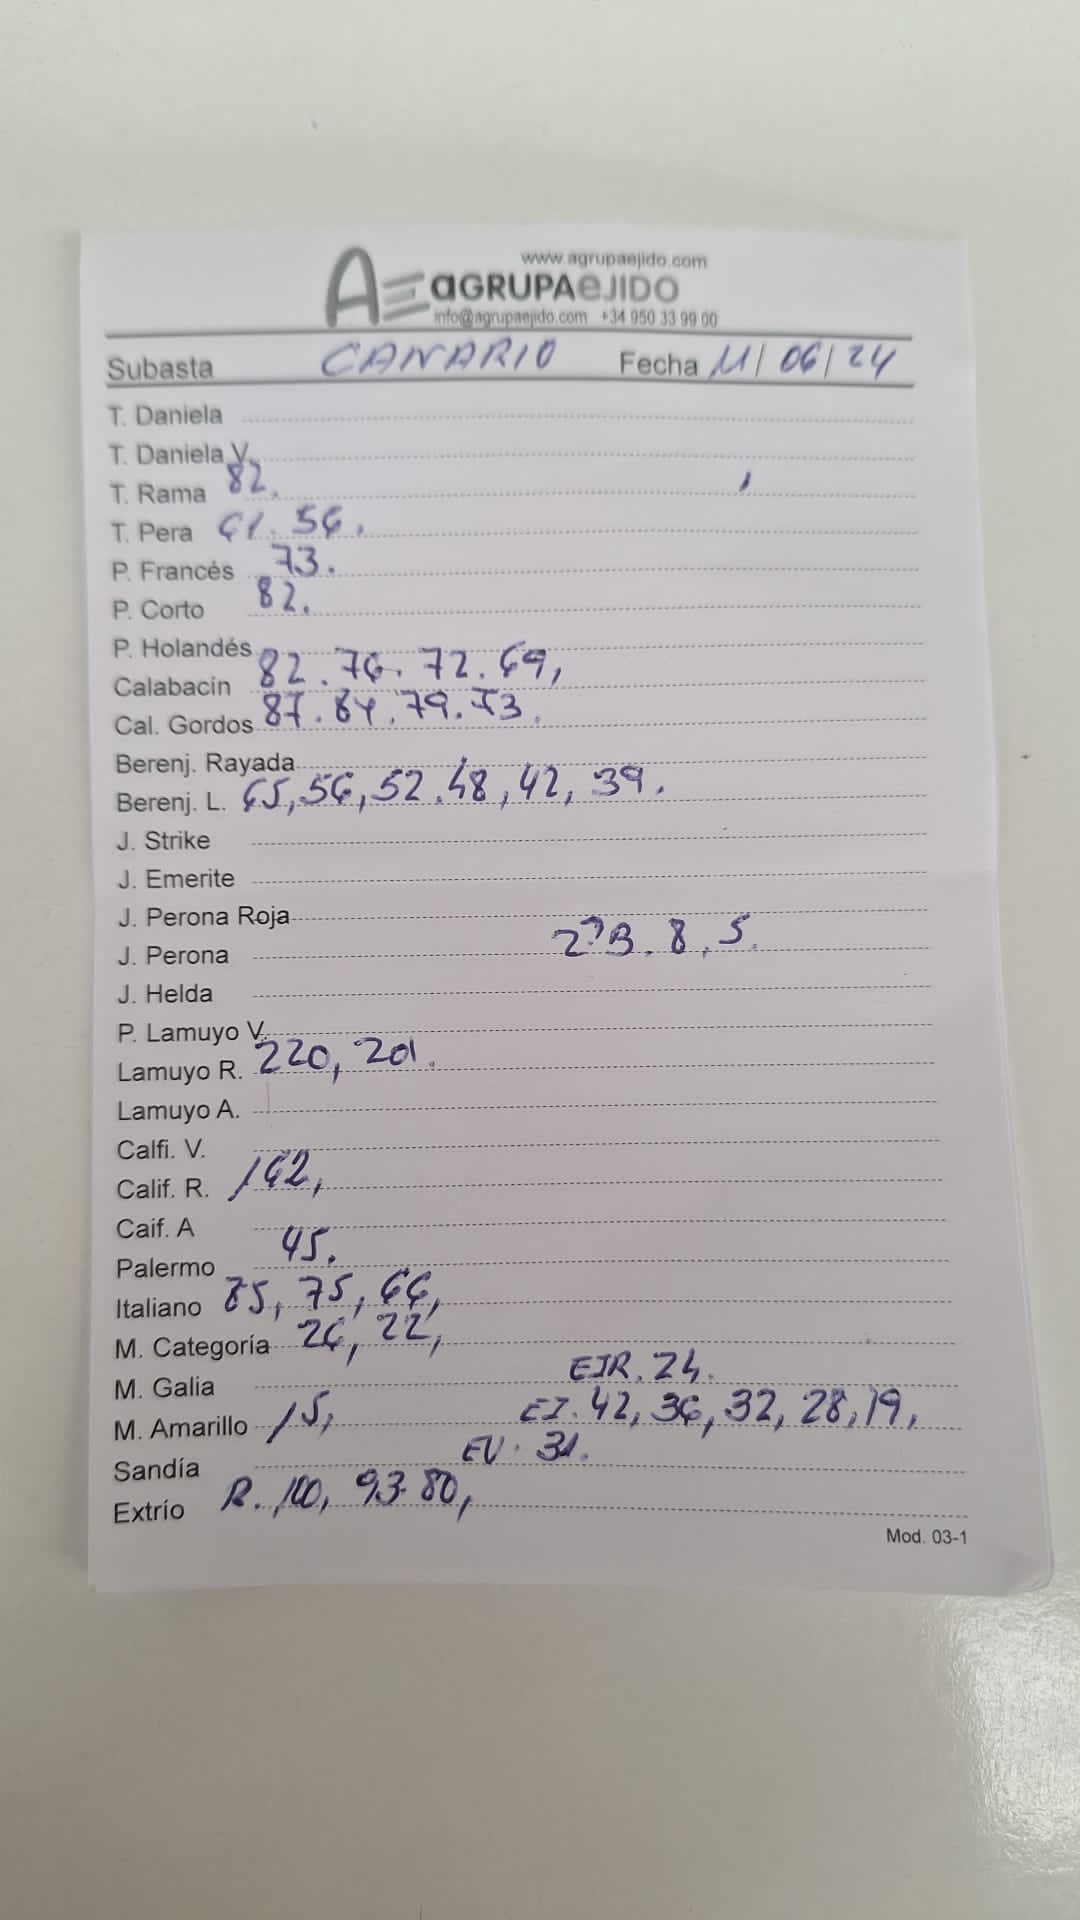 www.agrupaejido.com
AE aGRUPAeJIDO
info@agrupaejido.com +34 950 33 99 00
Subasta CANARIO Fecha 11/06/24
T. Daniela
T. Daniela V.
T. Rama 82.
T. Pera 61. 56.
P. Francés 73.
P. Corto 82.
P. Holandés
Calabacín 82. 76. 72. 69,
Cal. Gordos 87. 84. 79. 73.
Berenj. Rayada
Berenj. L. 65, 56, 52. 48, 42, 39.
J. Strike
J. Emerite
J. Perona Roja
J. Perona 2ªB. 8. 5.
J. Helda
P. Lamuyo V.
Lamuyo R. 220, 201.
Lamuyo A.
Calfi. V.
Calif. R. 162,
Caif. A
Palermo 45.
Italiano 85, 75, 66,
M. Categoría 26, 22,
M. Galia EJR. 24.
M. Amarillo 15, EJ. 42, 36, 32, 28, 19,
Sandía EV. 31.
Extrío R. 100, 93. 80,
Mod. 03-1